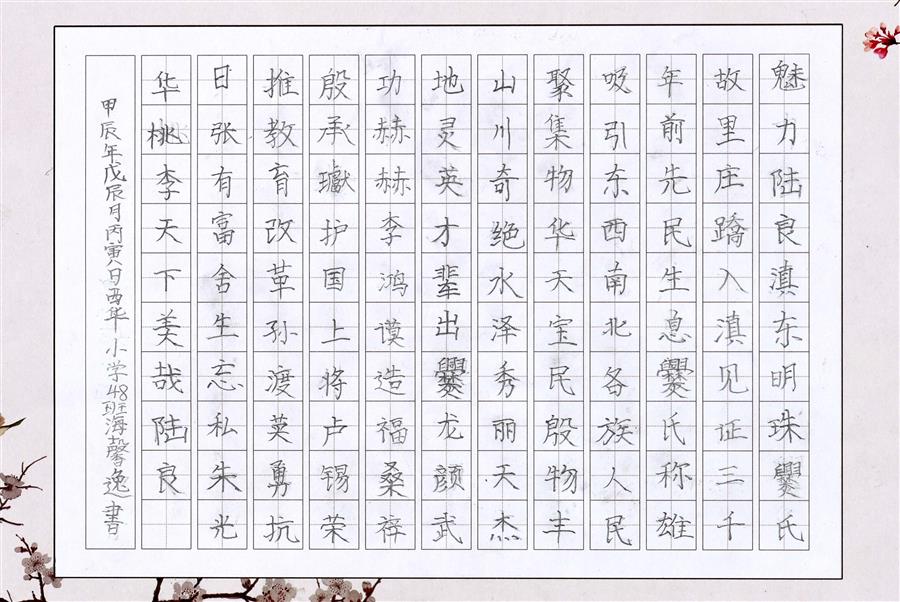 魅力陆良滇东明珠爨氏
故里庄蹻入滇见证三千
年前先民生息爨氏称雄
吸引东西南北各族人民
聚集物华天宝民殷物丰
山川奇绝水泽秀丽天杰
地灵英才辈出爨龙颜武
功赫赫李鸿谟造福桑梓
殷承瓛护国上将卢锡荣
推教育改革孙渡英勇抗
日张有富舍生忘私朱光
华桃李天下美哉陆良
甲辰年戊辰月丙寅日西华小学48班海馨逸書